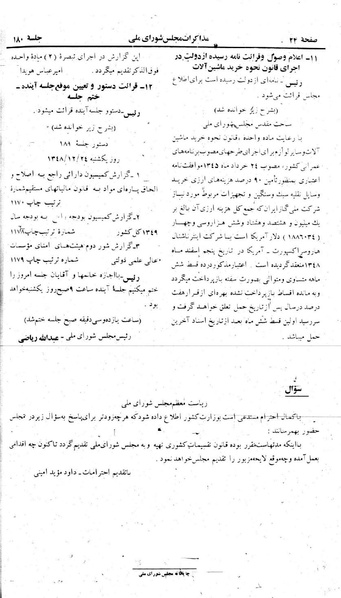 صفحه ۲۲
مذاکرات مجلس شورای ملی
جلسه ۱۸۰
۱۱- اعلام وصول وقرائت نامه رسیده ازدولت در
اجرای قانون نحوه خرید ماشین آلات
رئیس- نامه‌ای ازدولت رسیده است برای اطلاع
مجلس قرائت میشود.
(بشرح زیر خوانده شد)
ساحت مقدس مجلس شورای ملی
با رعایت ماده واحده، قانون نحوه خرید ماشین
آلات وسایر لوازم برای اجرای طرحهای مصوب برنامه‌های
عمرانی کشور، مصوب ۲۴ خرداد ماه ۱۳۴۵ موافقت نامه
اعتباری بمنظور تأمین ۹۰ درصد هزینه‌های ارزی خرید
وسایل نقلیه سبک وسنگین و تجهیزات مربوط مورد نیاز
شرکت ملی گاز ایران که جمع کل هزینه ارزی آن بالغ بر
یک میلیون و هشتصد وهشتاد وشش هزار وسی وچهار
(۱۸۸۶۰۳۴) دلار آمریکا است با شرکت
در تاریخ پنجم اسفند ماه
۱۳۴۸ منعقد گردیده است. اعتبار مذکور در ده قسط شش
ماهه متساوی ومتوالی بصورت سفته بازپرداخت میگردد
و به مانده اقساط بازپرداخت نشده بهره‌ای از قرار هفت
درصد در سال پس از تاریخ حمل تعلق خواهد گرفت و
سررسید اولین قسط شش ماه بعد از تاریخ اسناد آخرین
حمل میباشد.
این گزارش در اجرای تبصره (۲) ماده واحده
فوق‌الذکر تقدیم میگردد. امیرعباس هویدا
۱۲- قرائت دستور و تعیین موقع جلسه آینده -
ختم جلسه
رئیس- دستور جلسه آینده قرائت میشود.
(بشرح زیر خوانده شد)
دستور جلسه ۱۸۱
روز یکشنبه ۱۳۴۸/۱۲/۲۴
۱- گزارش کمیسیون دارائی راجع به اصلاح و
الحاق پاره‌ای مواد به قانون مالیاتهای مستقیم شماره
ترتیب چاپ ۱۱۷۰
۲- گزارش کمیسیون بودجه راجع به بودجه سال
۱۳۴۹ کل کشور شماره ترتیب چاپ
۳- گزارش شور دوم هیئت‌های امنای مؤسسات
عالی علمی دولتی شماره ترتیب چاپ ۱۱۷۹
رئیس- با اجازه خانمها و آقایان جلسه امروز را
ختم میکنیم جلسه آینده ساعت ۹ صبح روز یکشنبه خواهد
بود.
(ساعت یازده وسی دقیقه صبح جلسه ختم شد)
رئیس مجلس شورای ملی - عبدالله ریاضی
سؤال
ریاست معظم مجلس شورای ملی
باکمال احترام مستدعی است بوزارت کشور اطلاع داده شود که هرچه زودتر برای پاسخ به سؤال زیر در مجلس
حضور بهمرسانند:
با اینکه مدتهاست مقرر بوده قانون تقسیمات کشوری تهیه و به مجلس شورای ملی تقدیم گردد تاکنون چه اقدامی
بعمل آمده وچه موقع لایحه مزبور را تقدیم مجلس خواهند کرد.
باتقدیم احترامات - داود مؤید امینی
چاپخانه مجلس شورای ملی